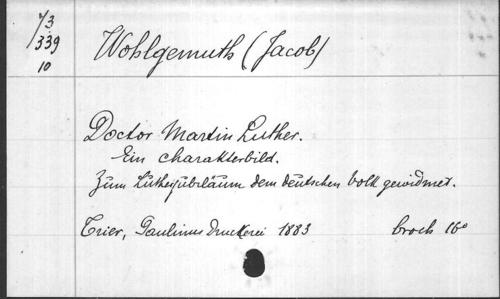 V3
339
10
Wohlgemuth (Jacob)
Doctor Martin Luther.
Ein Charakterbild.
Zum Lutherjubiläum dem deutschen Volk gewidmet.
Trier, Paulinus Druckerei 1883 broch 16°